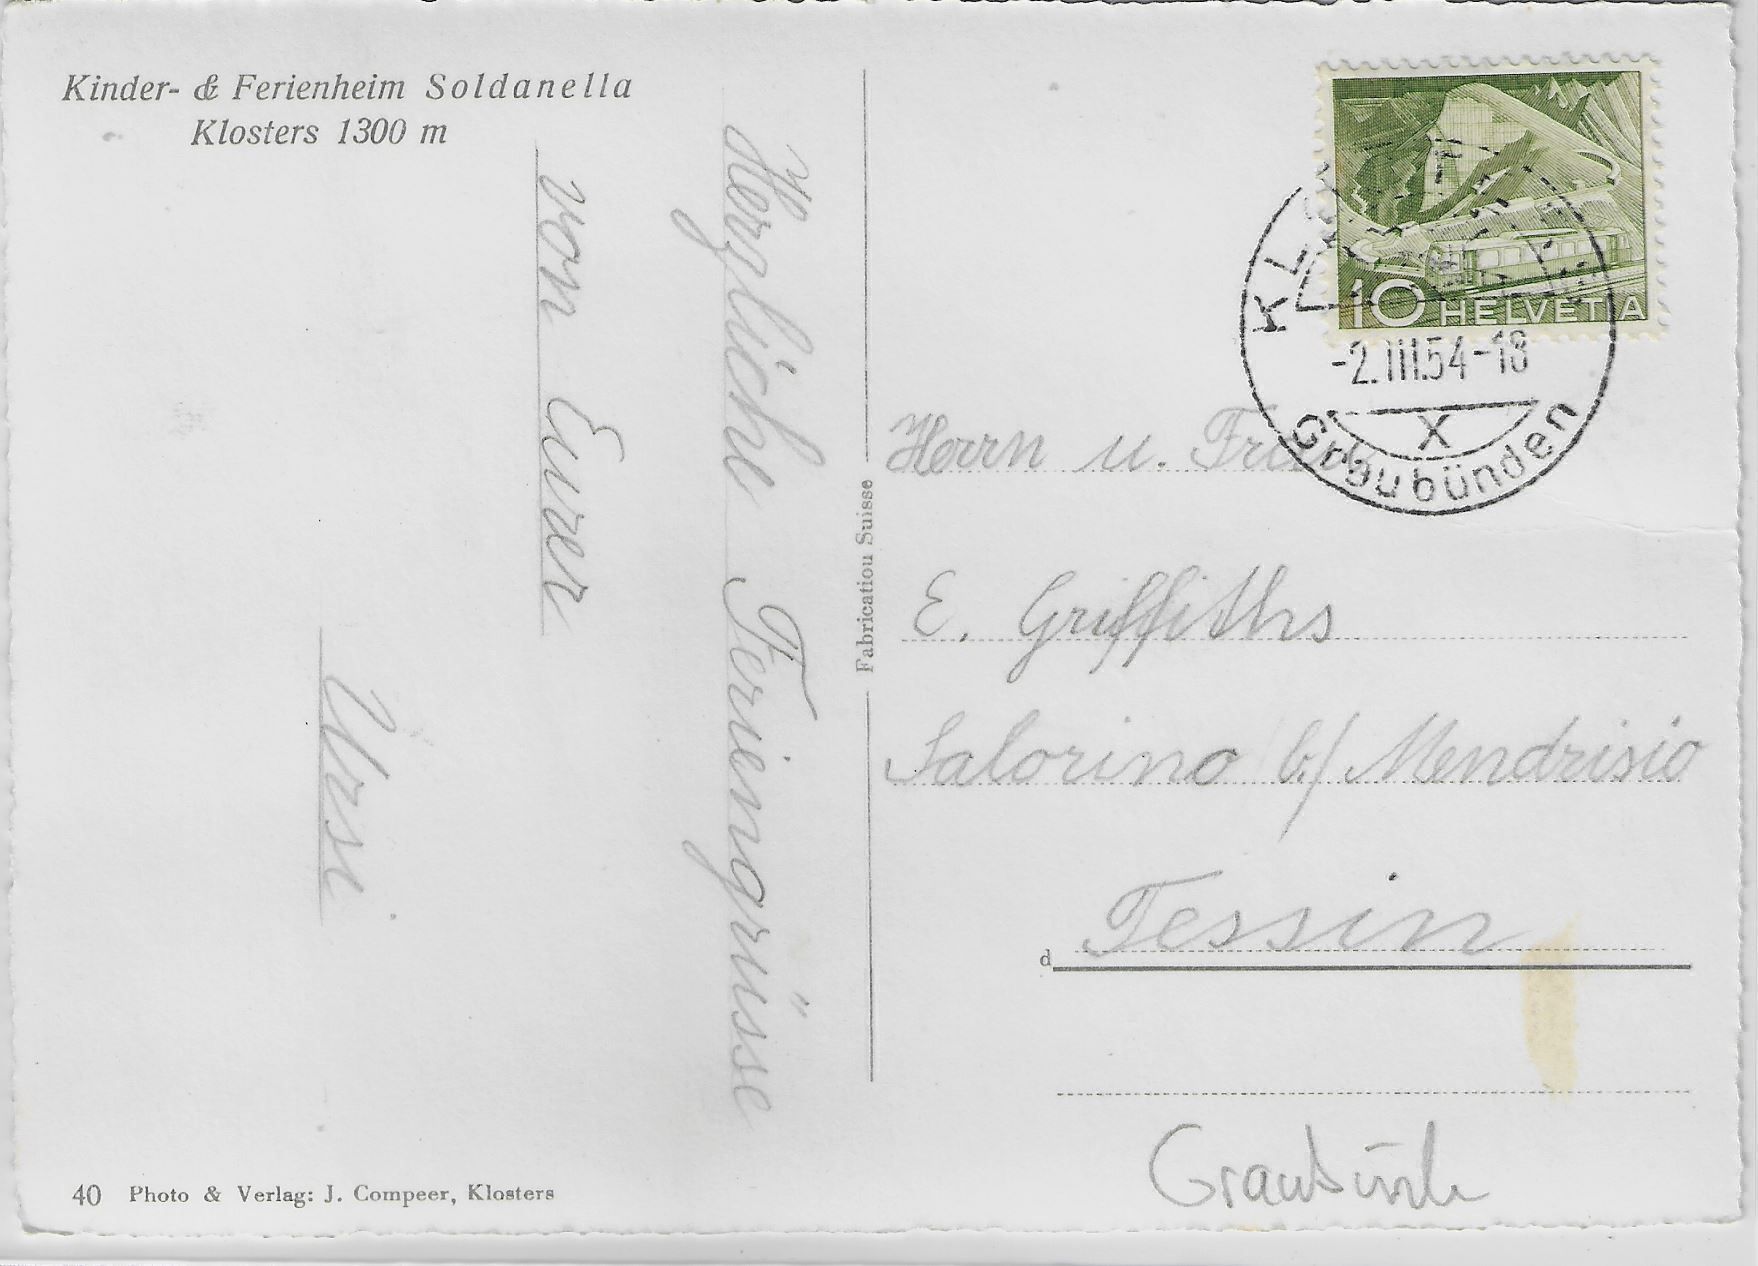 Kinder- & Ferienheim Soldanella
Klosters 1300 m
Herzliche Feriengrüsse
von Eurer
Ursi
40 Photo & Verlag: J. Compeer, Klosters
Fabricatiou Suisse
10 HELVETIA
-2.III.54-18
X
Graubünden
Herrn u. Frau
E. Griffiths
Salorino b/ Mendrisio
Tessin
d